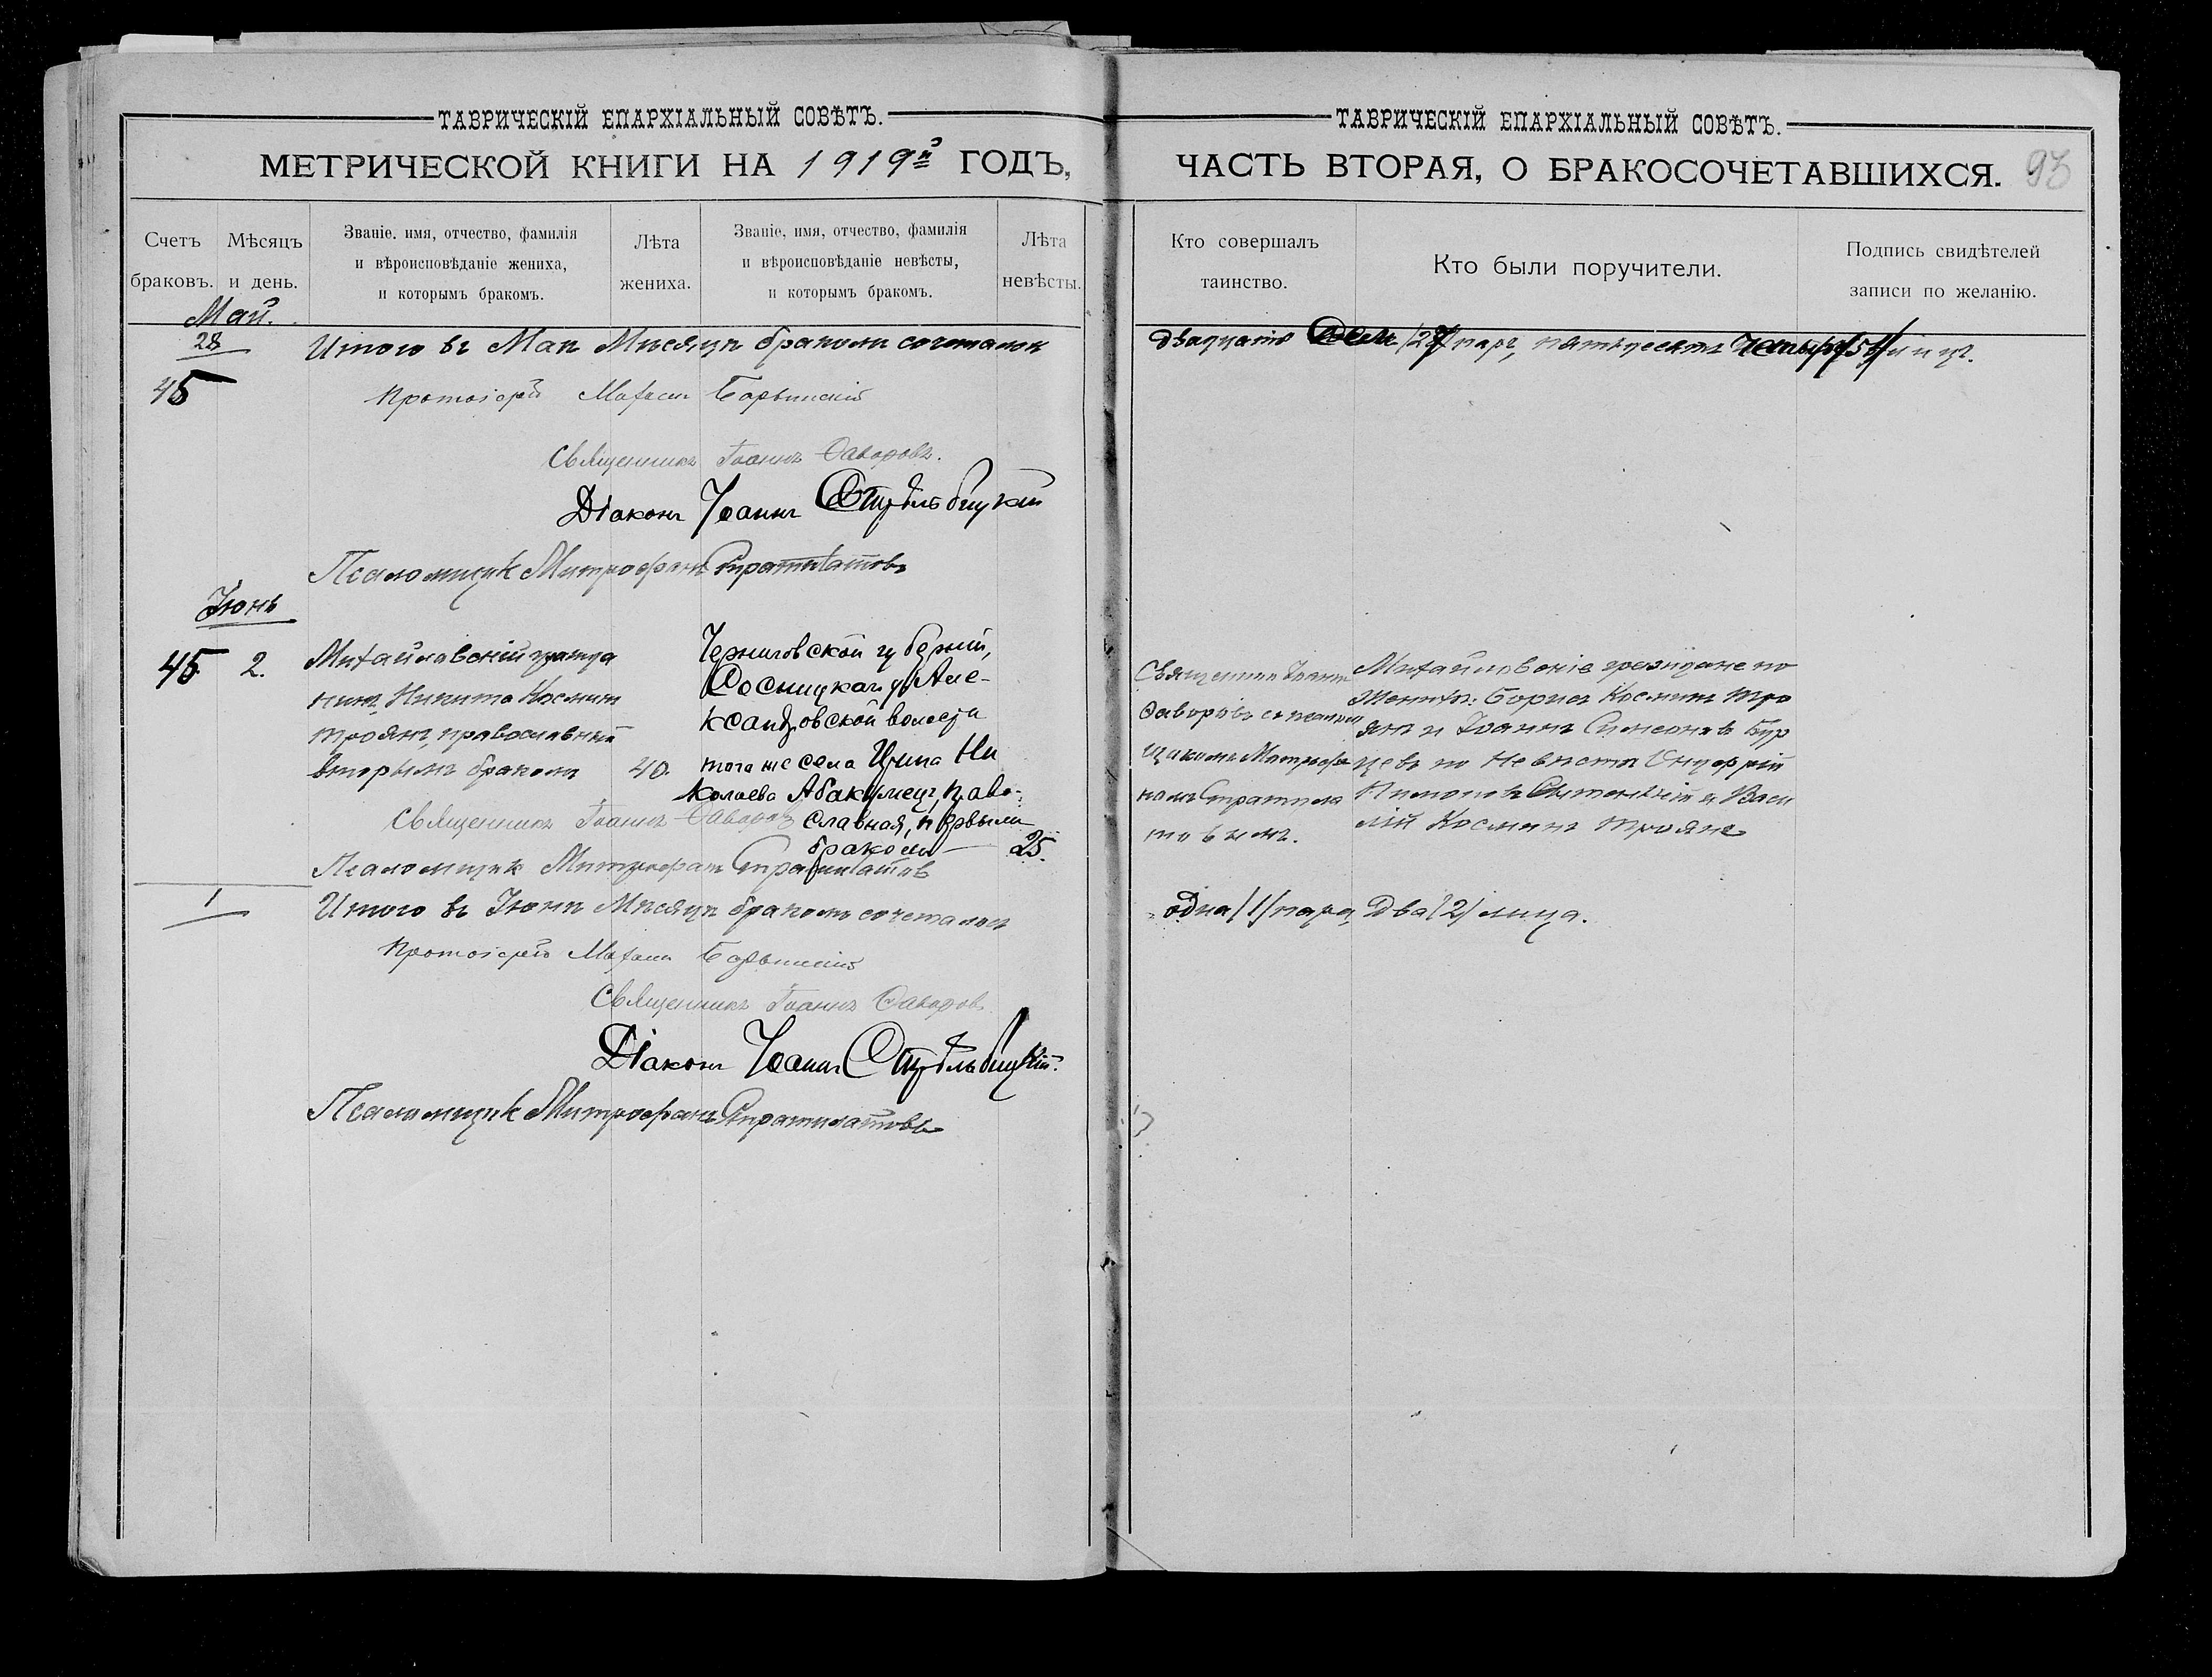 ТАВРИЧЕСКІЙ ЕПАРХІАЛЬНЫЙ СОВѢТЪ.
МЕТРИЧЕСКОЙ КНИГИ НА 1919й ГОДЪ,
Счетъ браковъ.
Мѣсяцъ и день.
Званіе, имя, отчество, фамилія
и вѣроисповѣданіе жениха,
и которымъ бракомъ.
Лѣта
жениха.
Званіе, имя, отчество, фамилія
и вѣроисповѣданіе невѣсты,
и которымъ бракомъ.
Лѣта
невѣсты.
Май.
28
Итого въ Маѣ Мѣсяцѣ бракомъ сочеталось
45
Протоіерей
Священникъ Іоаннъ Ѳаворовъ.
Діаконъ Іоаннъ Стрѣльбицкій
Псаломщик Митрофанъ Стратилатовъ
Іюнь
45 2.
Михайловскій гражда
нинъ Никита Космин
Троянъ, православный
вторымъ бракомъ 40.
Черниговской губерніи,
Сосницкаго у Але-
ксандровской волости
того же села Ирина Ни
колаева Абакумец, право-
славная, первымъ
бракомъ 25.
Священникъ Іоаннъ Ѳаворовъ
Псаломщик Митрофан Стратилатов
1
Итого въ Іюнѣ Мѣсяцѣ бракомъ сочеталось
Протоіерей
Священникъ Іоаннъ Ѳаворовъ
Діаконъ Іоаннъ Стрѣльбицкій.
Псаломщик Митрофанъ Стратилатовъ
ТАВРИЧЕСКІЙ ЕПАРХІАЛЬНЫЙ СОВѢТЪ.
ЧАСТЬ ВТОРАЯ, О БРАКОСОЧЕТАВШИХСЯ.
Кто совершалъ
таинство.
Кто были поручители.
Подпись свидѣтелей
записи по желанію.
двадцать семь /27/ паръ, пятьдесятъ четыре /54/ лицъ.
Священник Іоаннъ
Ѳаворовъ съ псалом
щикомъ Митрофа
номъ Стратила
товымъ.
Михайловскіе граждане по
Женихѣ: Борис Космин Тро
янъ и Іоаннъ Симеоновъ Бур
цевъ по Невѣстѣ Онуфрій
и Васи
лій Косминъ Троянъ
одна /1/ пара, два /2/ лица.